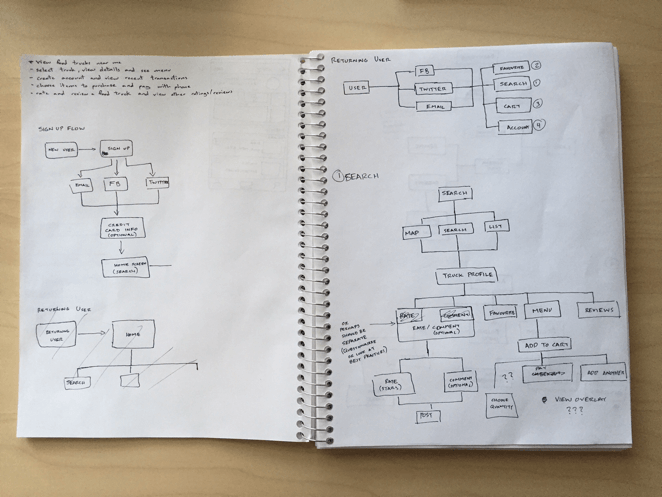 * VIEW FOOD TRUCKS NEAR ME
- SELECT TRUCK, VIEW DETAILS AND SEE MENU
- CREATE ACCOUNT AND VIEW RECENT TRANSACTIONS
- CHOOSE ITEMS TO PURCHASE AND PAY WITH PHONE
- RATE AND REVIEW A FOOD TRUCK AND VIEW OTHER RATINGS/REVIEWS
SIGN UP FLOW
NEW USER
SIGN UP
EMAIL
FB
TWITTER
CREDIT
CARD INFO
(OPTIONAL)
HOME SCREEN
(SEARCH)
RETURNING USER
RETURNING
USER
HOME
SEARCH
RETURNING USER
USER
FB
TWITTER
EMAIL
FAVOURITE 2
SEARCH 1
CART 3
ACCOUNT 4
1 SEARCH
SEARCH
MAP
SEARCH
LIST
TRUCK PROFILE
RATE
COMMENT
RATE/COMMENT
(OPTIONAL)
FAVOURITE
MENU
REVIEWS
OR
PERHAPS
SHOULD BE
SEPARATE
(QUESTIONNAIRE
OR LOOK AT
BEST PRACTICES)
RATE
(STARS)
COMMENT
(OPTIONAL)
POST
ADD TO CART
??
CHOOSE
QUANTITY
PAY
ADD ANOTHER
VIEW OVERLAY
???